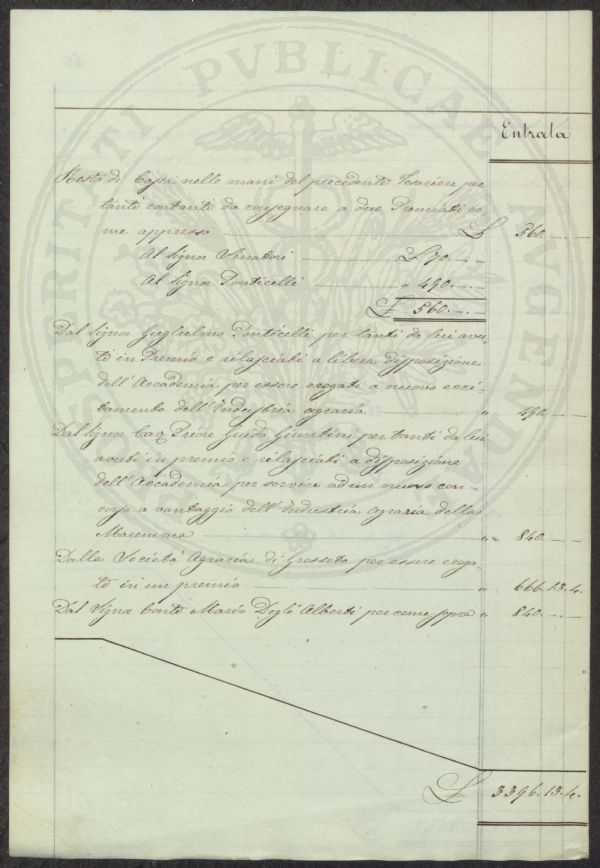 Entrata
Resto di Cassa nelle mani del precedente Tesoriere per
tanti contanti da consegnare a due Premiati co-
me appresso £ 560.—.—
Al Signor Serratori £ 70.—.—
Al Signor Ponticelli " 490.—.—
£ 560.—.—
Dal Signor Guglielmo Ponticelli per tanti da lui avu-
ti in Premio e rilasciati a libera disposizione
dell'Accademia per essere erogati a nuovo ecci-
tamento dell'Industria agraria " 490.—.—
Dal Signor Cav. Priore Guido Giuntini per tanti da lui
avuti in premio e rilasciati a disposizione
dell'Accademia per servire ad un nuovo con-
corso a vantaggio dell'Industria Agraria della
Maremma " 840.—.—
Dalla Società Agraria di Grosseto per essere eroga-
to in un premio " 666.13.4.
Dal Signor Conte Mario Degli Alberti per come sopra " 840.—.—
£ 3396.13.4.
PROSPERITATI PVBLICAE AVGENDAE